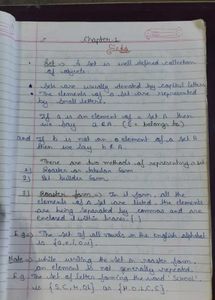 Chapter-1
Sets
Set :- A set is well defined collection
of objects.
Sets are usually denoted by capital letters
The elements of a set are represented
by small letters.
If a is an element of a set A then
we say a ∈ A (∈ = belongs to)
and If b is not an element of a set A
then we say b ∉ A.
There are two methods of representing a set
1) Roaster or tabular form
2) Set builder form
1) Roaster form :- In it form, all the
elements of a set are listed, the elements
are being separated by commas and are
enclosed within braces { }
E.g :- The set of all vowels in the English alphabet
is {a, e, i, o, u}.
Note :- while writing the set in roaster form,
an element is not generally repeated.
E.g. The set of letter forming the word 'school'
is {S, C, H, O, L}